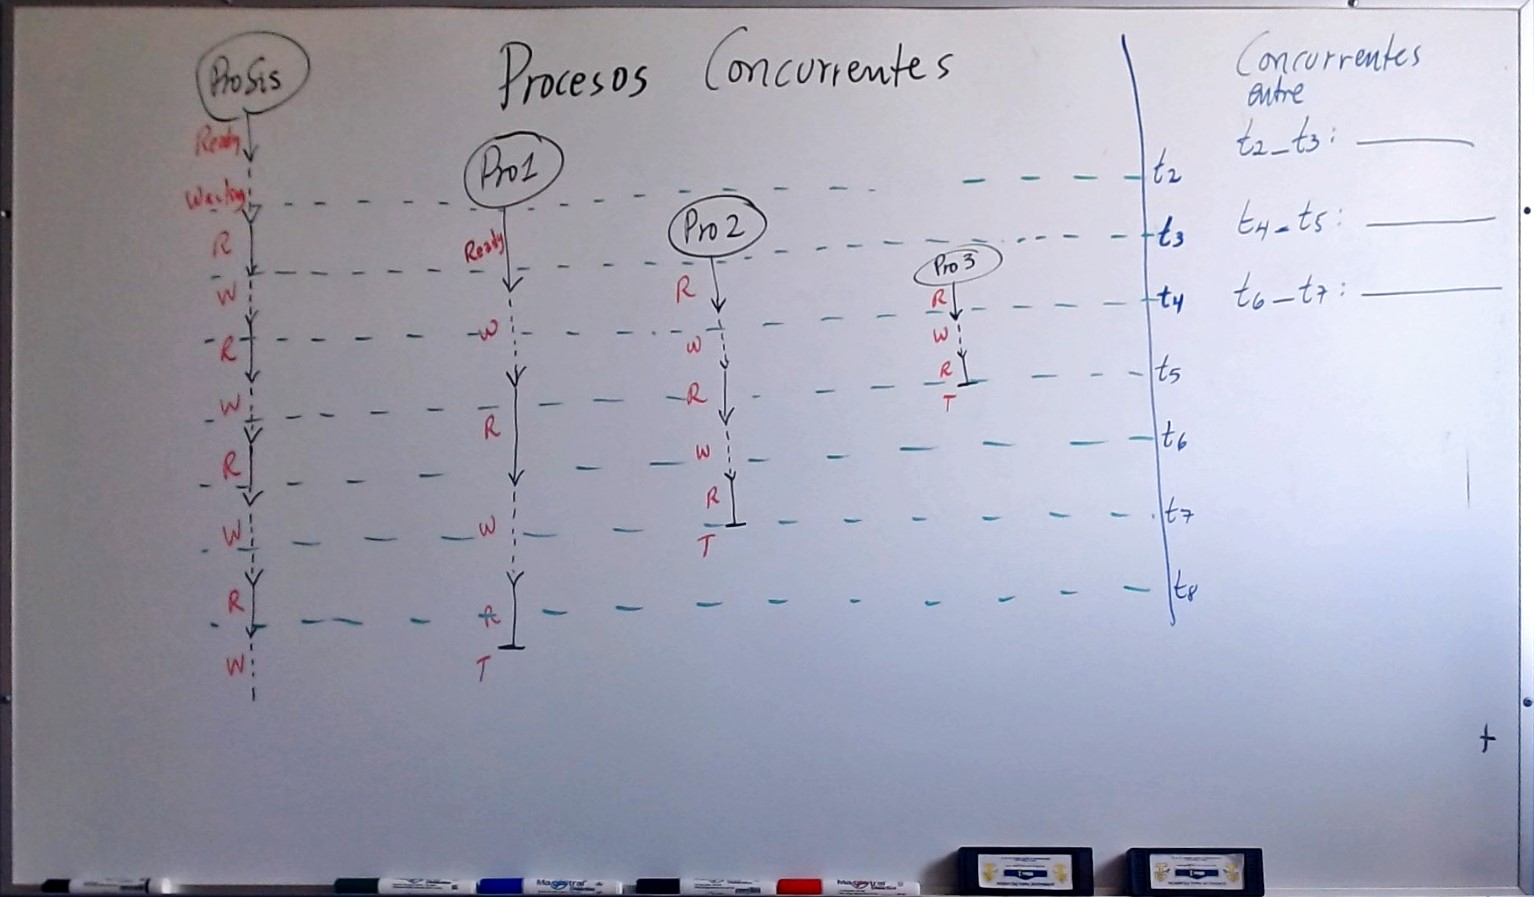 Procesos Concurrentes
ProSis
Ready
Waiting
R
W
R
W
R
W
R
W
Pro1
Ready
W
R
W
R
T
Pro2
R
W
R
W
R
T
Pro3
R
W
R
T
t2
t3
t4
t5
t6
t7
t8
Concurrentes
entre
t2-t3:
t4-t5:
t6-t7:
+
Magistral
Magistral